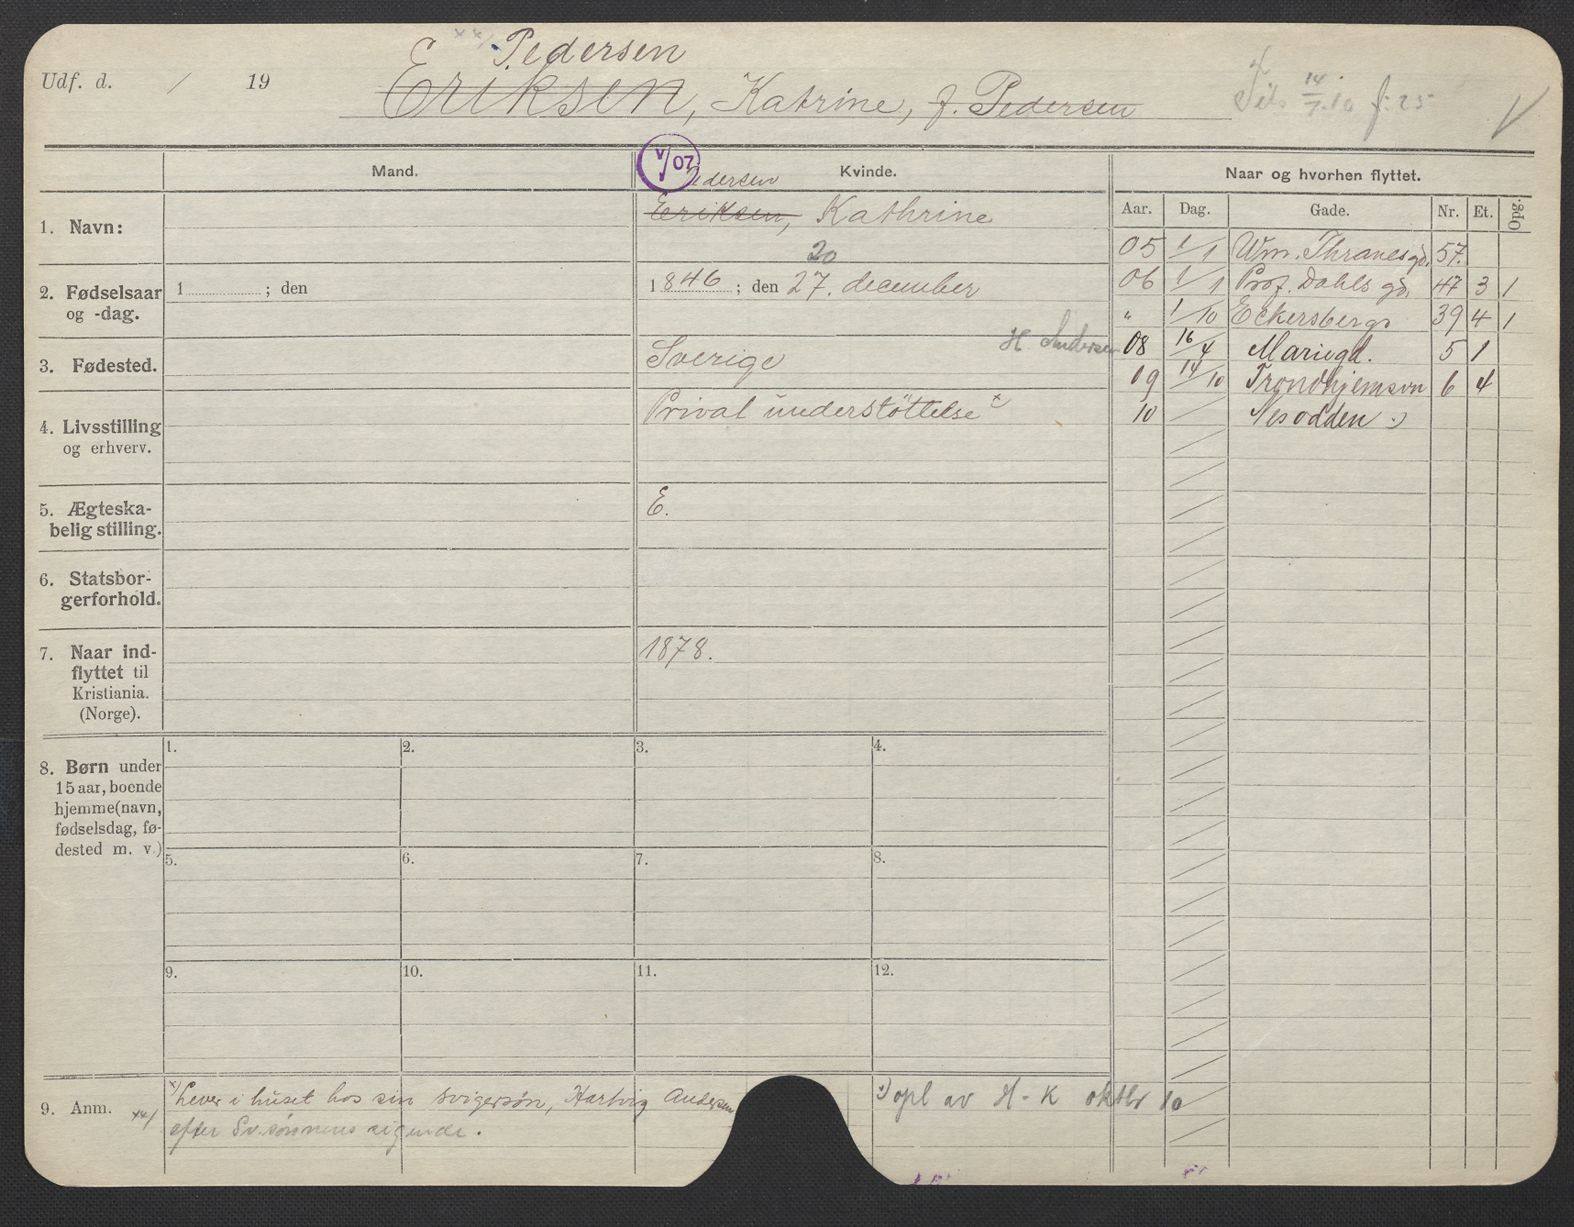 xx/ Pedersen
Udf. d. / 19
Eriksen, Katrine, f. Pedersen
14/7.10 f: 25
V/07
Mand.
Kvinde.
Naar og hvorhen flyttet.
Aar. Dag. Gade. Nr. Et. Opg.
1. Navn:
Pedersen
Eriksen, Kathrine
2. Fødselsaar og -dag.
1 ; den
20
1846 ; den 27. december
3. Fødested.
Sverige
H Andersen
4. Livsstilling og erhverv.
Privat understöttelse x
5. Ægteskabelig stilling.
E.
6. Statsborgerforhold.
7. Naar indflyttet til Kristiania. (Norge).
1878.
05 1/1 Wm. Thranesgd. 57.
06 1/1 Prof. Dahls gd. 47 3 1
" 1/10 Eckersbergs 39 4 1
08 16/4 Mariegd. 5 1
09 14/10 Trondhjemsvn 6 4
10 Nesodden :)
8. Børn under
15 aar, boende
hjemme (navn,
fødselsdag, fø-
dested m. v.)
1. 2. 3. 4.
5. 6. 7. 8.
9. 10. 11. 12.
9. Anm.
x/ Lever i huset hos sin svigersøn, Hartvig Andersen
xx/ efter Sv.sønnens sigende.
:) opl av H-K oktbr 10